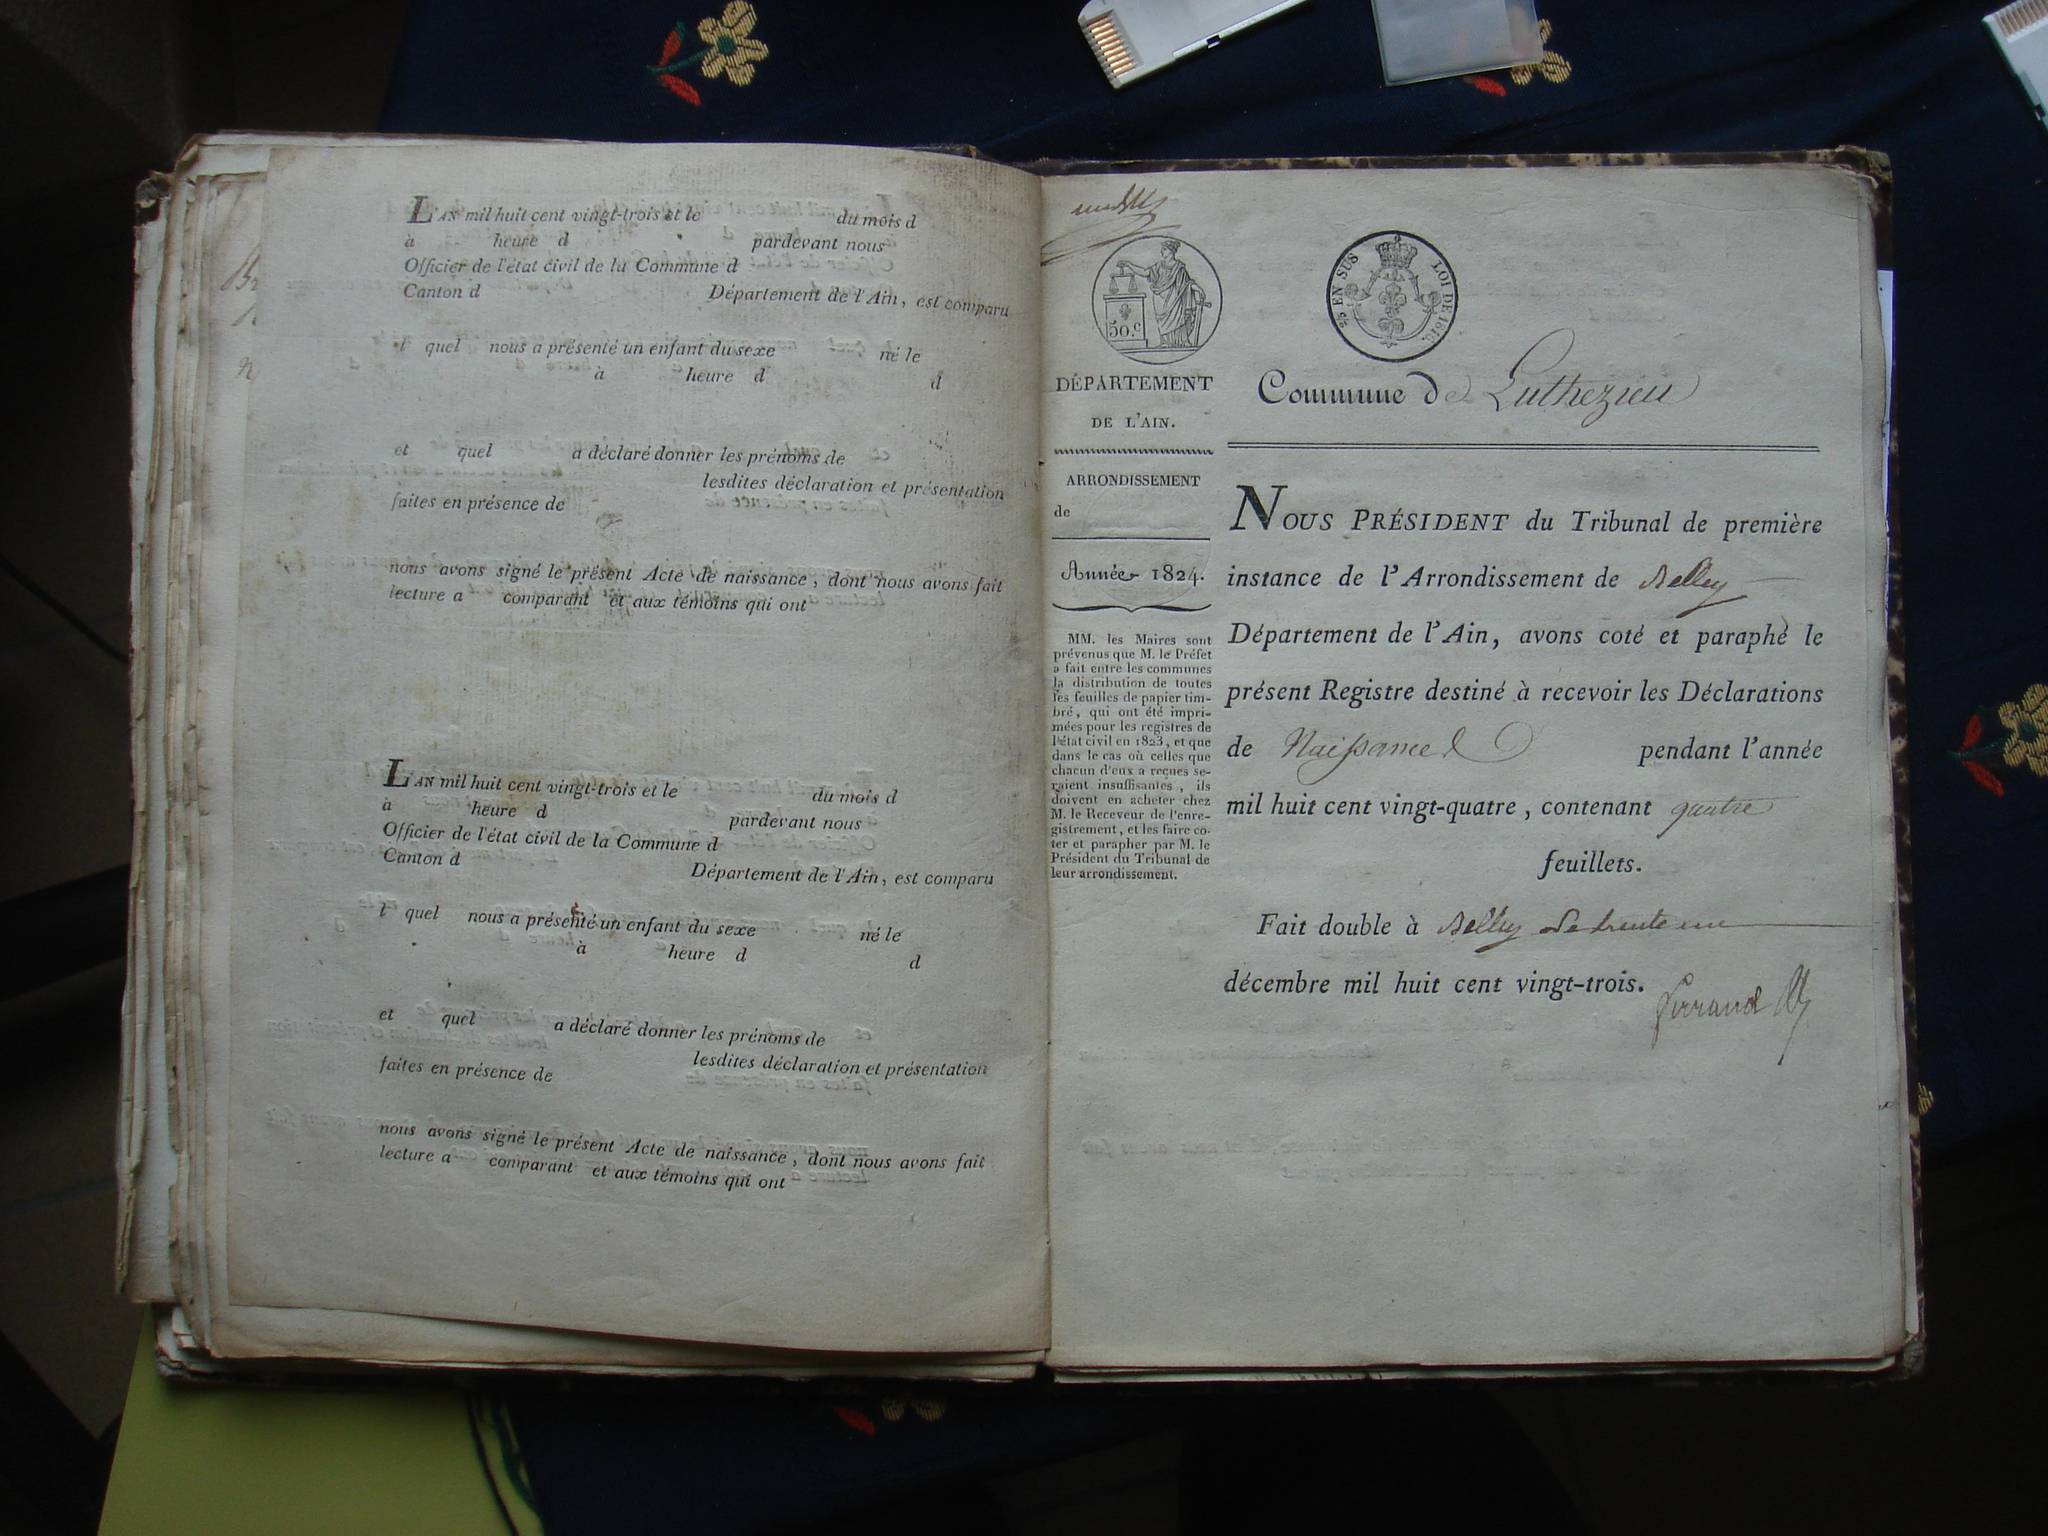 LAN mil huit cent vingt-trois et le du mois d
à heure d pardevant nous
Officier de l'état civil de la Commune d
Canton d Département de l'Ain, est comparu
l quel nous a présenté un enfant du sexe né le
à heure d d
et quel a déclaré donner les prénoms de
lesdites déclaration et présentation
faites en présence de
nous avons signé le présent Acte de naissance, dont nous avons fait
lecture a comparant et aux témoins qui ont
LAN mil huit cent vingt-trois et le du mois d
à heure d pardevant nous
Officier de l'état civil de la Commune d
Canton d Département de l'Ain, est comparu
l quel nous a présenté un enfant du sexe né le
à heure d d
et quel a déclaré donner les prénoms de
lesdites déclaration et présentation
faites en présence de
nous avons signé le présent Acte de naissance, dont nous avons fait
lecture a comparant et aux témoins qui ont
50.c
EN SUS LOI DE 1816.
DÉPARTEMENT
DE L'AIN.
ARRONDISSEMENT
de
Année 1824.
MM. les Maires sont
prévenus que M. le Préfet
a fait entre les communes
la distribution de toutes
les feuilles de papier tim-
bré, qui ont été impri-
mées pour les registres de
l'état civil en 1823, et que
dans le cas où celles que
chacun d'eux a reçues se-
raient insuffisantes, ils
doivent en acheter chez
M. le Receveur de l'enre-
gistrement, et les faire co-
ter et parapher par M. le
Président du Tribunal de
leur arrondissement.
Commune de Luthezieu
NOUS PRÉSIDENT du Tribunal de première
instance de l'Arrondissement de Belley
Département de l'Ain, avons coté et paraphé le
présent Registre destiné à recevoir les Déclarations
de Naissance pendant l'année
mil huit cent vingt-quatre, contenant quatre
feuillets.
Fait double à Belley le trente un
décembre mil huit cent vingt-trois.